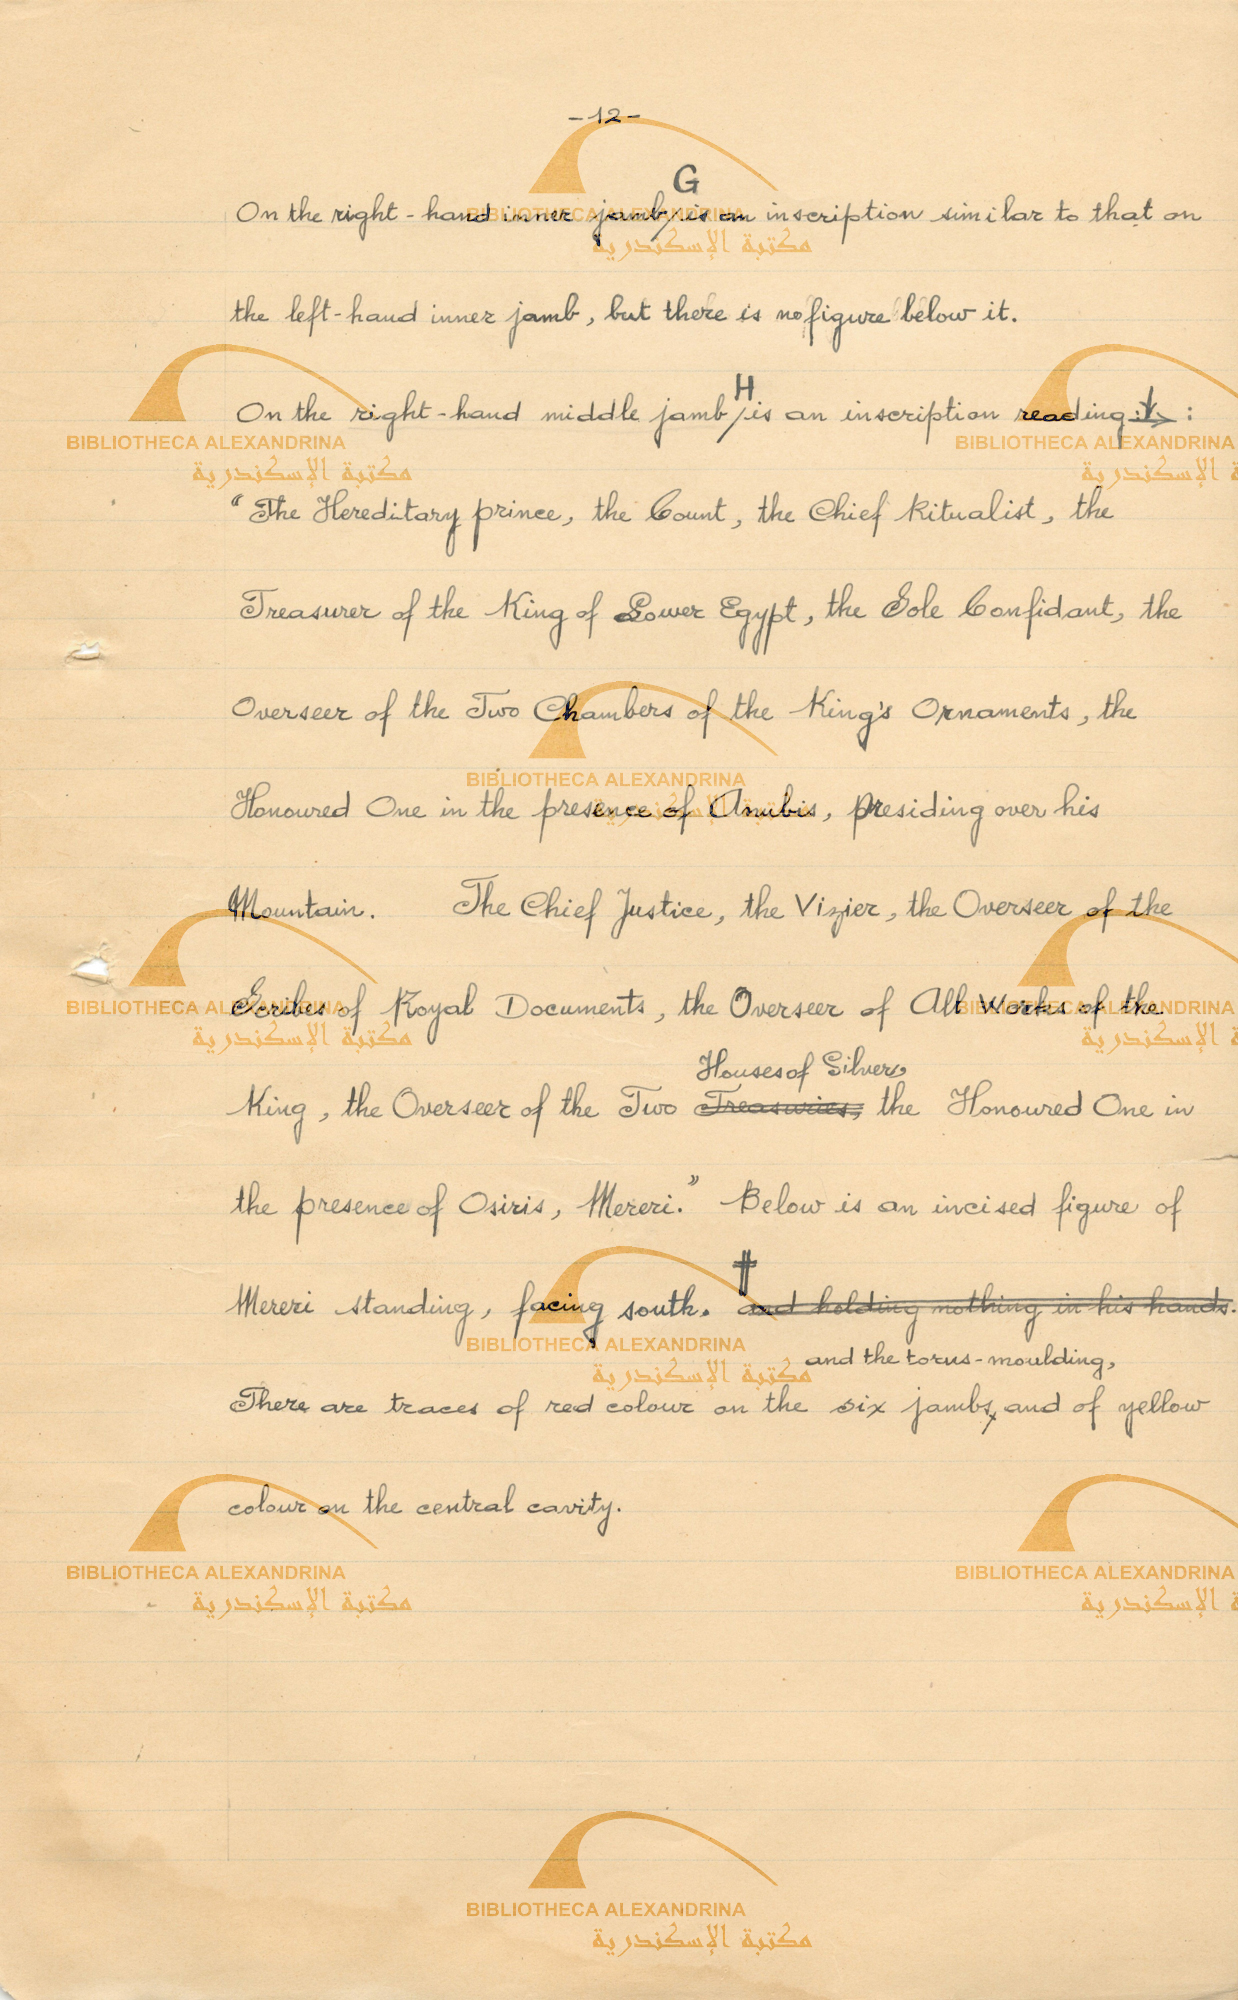 -12-
G
On the right-hand inner jamb/is an inscription similar to that on
the left-hand inner jamb, but there is no figure below it.
H
On the right-hand middle jamb/is an inscription reading :
"The Hereditary prince, the Count, the Chief Ritualist, the
Treasurer of the King of Lower Egypt, the Sole Confidant, the
Overseer of the Two Chambers of the King's Ornaments, the
Honoured One in the presence of Anubis, presiding over his
Mountain. The Chief Justice, the Vizier, the Overseer of the
Scribes of Royal Documents, the Overseer of All Works of the
Houses of Silver,
King, the Overseer of the Two Treasuries, the Honoured One in
the presence of Osiris, Mereri." Below is an incised figure of
‡
Mereri standing, facing south. and holding nothing in his hands.
and the torus-moulding,
There are traces of red colour on the six jambs, and of yellow
colour on the central cavity.
BIBLIOTHECA ALEXANDRINA
مكتبة الإسكندرية
BIBLIOTHECA ALEXANDRINA
مكتبة الإسكندرية
BIBLIOTHECA ALEXANDRINA
مكتبة الإسكندرية
BIBLIOTHECA ALEXANDRINA
مكتبة الإسكندرية
BIBLIOTHECA ALEXANDRINA
مكتبة الإسكندرية
BIBLIOTHECA ALEXANDRINA
مكتبة الإسكندرية
BIBLIOTHECA ALEXANDRINA
مكتبة الإسكندرية
BIBLIOTHECA ALEXANDRINA
مكتبة الإسكندرية
BIBLIOTHECA ALEXANDRINA
مكتبة الإسكندرية
BIBLIOTHECA ALEXANDRINA
مكتبة الإسكندرية